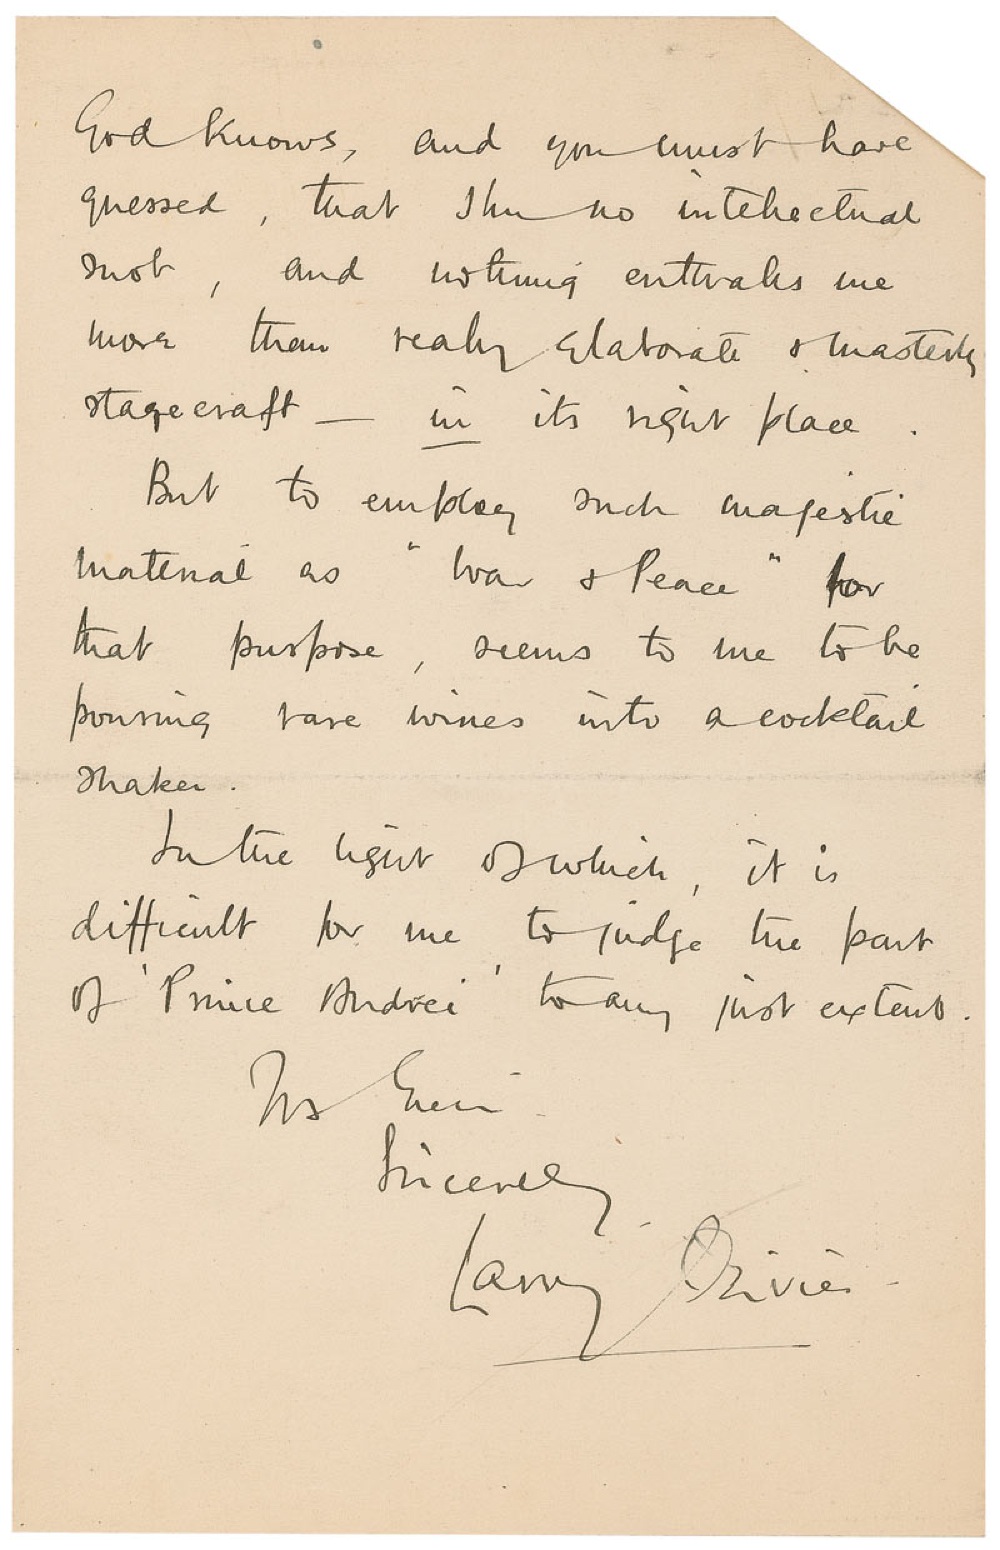 God knows, and you must have
guessed, that I'm no intellectual
snob, and nothing enthralls me
more than really elaborate & masterly
stagecraft — in its right place.
But to employ such majestic
material as "War & Peace" for
that purpose, seems to me to be
pouring rare wines into a cocktail
shaker.
In the light of which, it is
difficult for me to judge the part
of 'Prince Andrei' to any just extent.
Yrs Ever.
Sincerely
Larry Olivier.